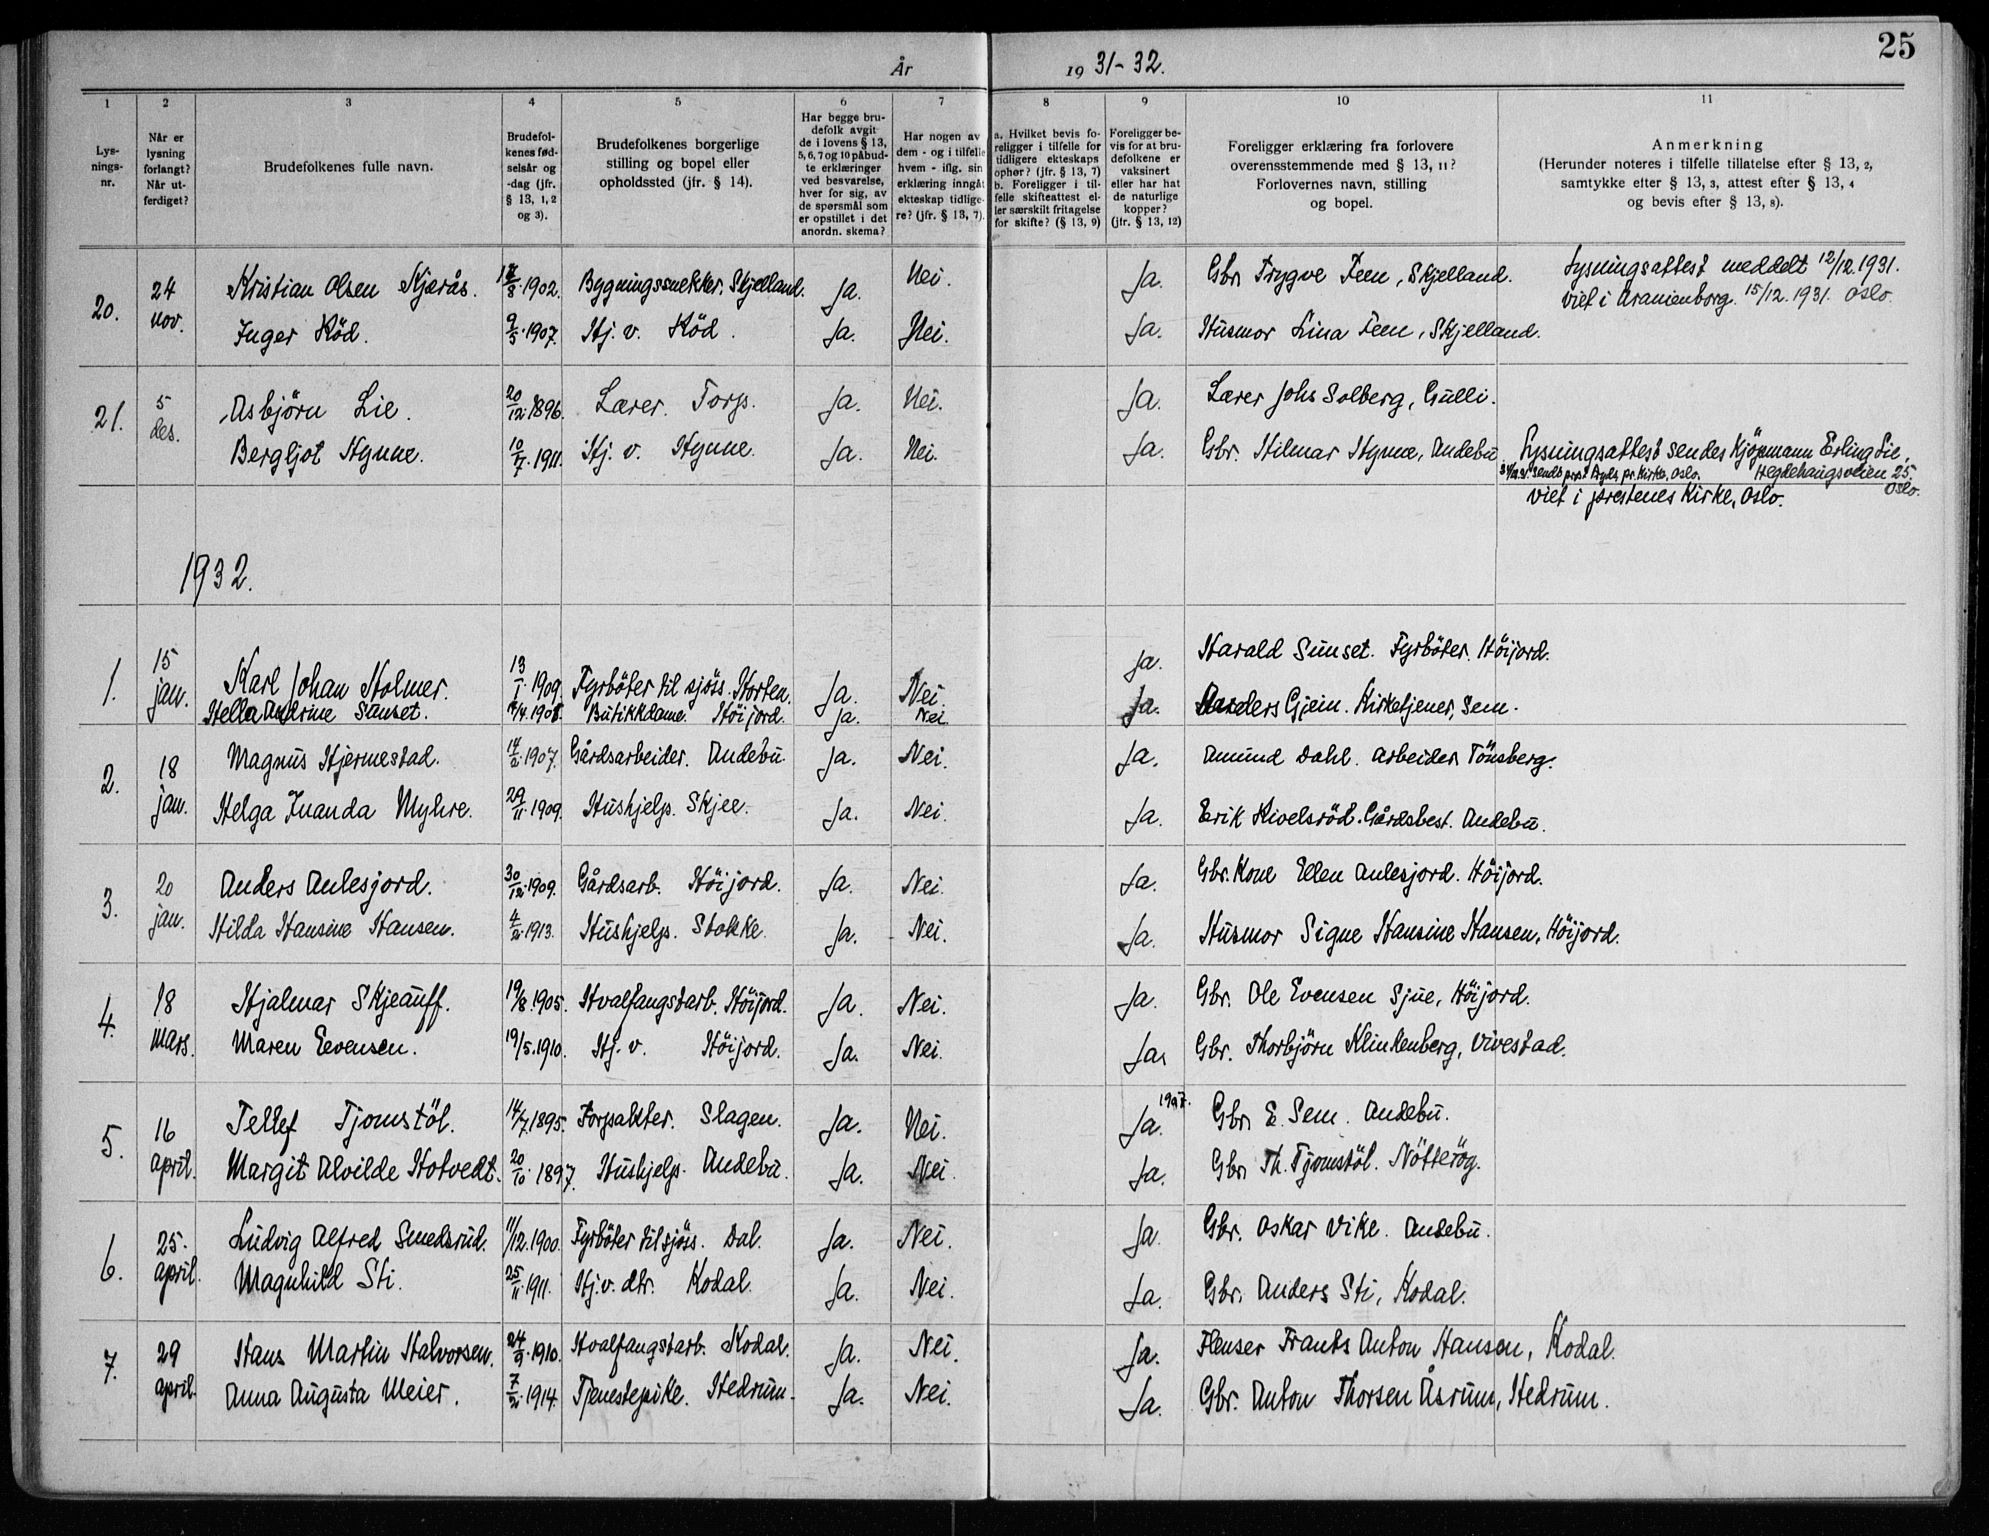 25
År 1931-32.
1 2 3 4 5 6 7 8 9 10 11
Lys-
nings-
nr.
Når er
lysning
forlangt?
Når ut-
ferdiget?
Brudefolkenes fulle navn.
Brudefol-
kenes fød-
selsår og
-dag (jfr.
§ 13, 1, 2
og 3).
Brudefolkenes borgerlige
stilling og bopel eller
opholdssted (jfr. § 14).
Har begge bru-
defolk avgit
de i lovens § 13,
5, 6, 7 og 10 påbud-
te erklæringer
ved besvarelse,
hver for sig, av
de spørsmål som
er opstillet i det
anordn. skema?
Har nogen av
dem - og i tilfelle
hvem - iflg. sin
erklæring inngåt
ekteskap tidlige-
re? (jfr. § 13, 7).
a. Hvilket bevis fo-
religger i tilfelle for
tidligere ekteskaps
ophør? (jfr. § 13, 7)
b. Foreligger i til-
felle skifteattest el-
ler særskilt fritagelse
for skifte? (§ 13, 9)
Foreligger be-
vis for at bru-
defolkene er
vaksinert
eller har hat
de naturlige
kopper?
(jfr. § 13, 12)
Foreligger erklæring fra forlovere
overensstemmende med § 13, 11?
Forlovernes navn, stilling
og bopel.
Anmerkning
(Herunder noteres i tilfelle tillatelse efter § 13, 2,
samtykke efter § 13, 3, attest efter § 13, 4
og bevis efter § 13, 8).
20. 24 nov. Kristian Olsen Skjerås. 8. 1902. Bygningssnekker. Skjelland. Ja. Nei. Ja. Gbr. Trygve Feen, Skjelland. Lysningsattest meddelt 12/12.1931.
Viet i Uranienborg. 15/12.1931. Oslo.
Inger Död. 9/5.1907. Hj. v. Död. Ja. Nei. Ja. Husmor Lina Feen, Skjelland.
21. 5 des. Asbjörn Lie. 20/12.1896. Lærer. Torp. Ja. Nei. Ja. Lærer Johs Solberg, Gulli.
Bergljot Hynne. 10/7.1911. Hj. v. Hynne. Ja. Nei. Ja. Gbr. Hilmar Hynne, Andebu. Lysningsattest sendes Kjöpmann Erling Lie,
Hegdehaugsveien 25.
Oslo.
Viet i prestenes Kirke, Oslo.
1932.
1. 15 jan. Karl Johan Holmer. 13/1.1909. Fyrböter til sjöss. Horten. Ja. Nei. Ja. Harald Sunset. Fyrböter. Höijord.
Hella Andrine Sunset. /4.1908. Butikkdame. Höijord. Ja. Nei. Ja. Anders Gjein. Kirketjener, Sem.
2. 18 jan. Magnus Hjermestad. 14/2.1907. Gårdsarbeider. Andebu. Ja. Nei. Ja. Amund Dahl. Arbeider. Tönsberg.
Helga Ivanda Myhre. 29/11.1909. Hushjelp. Skjee. Ja. Nei. Ja. Erik Kivelsröd. Gårdsbest. Andebu.
3. 20 jan. Anders Aulesjord. 30/12.1909. Gårdsarb. Höijord. Ja. Nei. Ja. Gbr. Kone Ellen Aulesjord. Höijord.
Hilda Hansine Hansen. 4/2.1913. Hushjelp. Stokke. Ja. Nei. Ja. Husmor Signe Hansine Hansen, Höijord.
4. 18 mars. Hjalmar Skjeauff. 19/8.1905. Hvalfangstarb. Höijord. Ja. Nei. Ja. Gbr. Ole Evensen Sjue, Höijord.
Maren Eevensen. 19/5.1910. Hj. v. Höijord. Ja. Nei. Ja. Gbr. Thorbjörn Klinkenberg, Vivestad.
5. 16 april. Tellef Tjomstöl. 14/7.1895. Forpakter. Slagen. Ja. Nei. Ja. Gbr. E. Sem. Andebu.
Margit Alvilde Hotvedt. 20/10.1897. Hushjelp. Andebu. Ja. Nei. Ja. Gbr. Th. Tjomstöl. Nötteröy.
6. 25. april. Ludvig Alfred Smedsrud. 11/12.1900. Fyrböter til sjöss. Dal. Ja. Nei. Ja. Gbr. Oskar Vike. Andebu.
Magnhild Sti. 25/11.1911. Hj. v. dtr. Kodal. Ja. Nei. Ja. Gbr. Anders Sti, Kodal.
7. 29 april. Hans Martin Halvorsen. 24/9.1910. Hvalfangstarb. Kodal. Ja. Nei. Ja. Flenser Frants Anton Hansen, Kodal.
Anna Augusta Meier. 7/2.1914. Tjenestepike. Hedrum. Ja. Nei. Ja. Gbr. Anton Thorsen Åsrum, Hedrum.